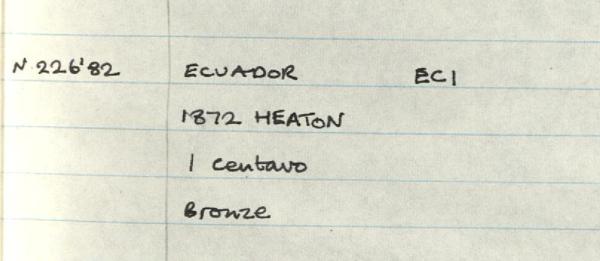 N 226'82 ECUADOR EC1
1872 HEATON
1 Centavo
Bronze